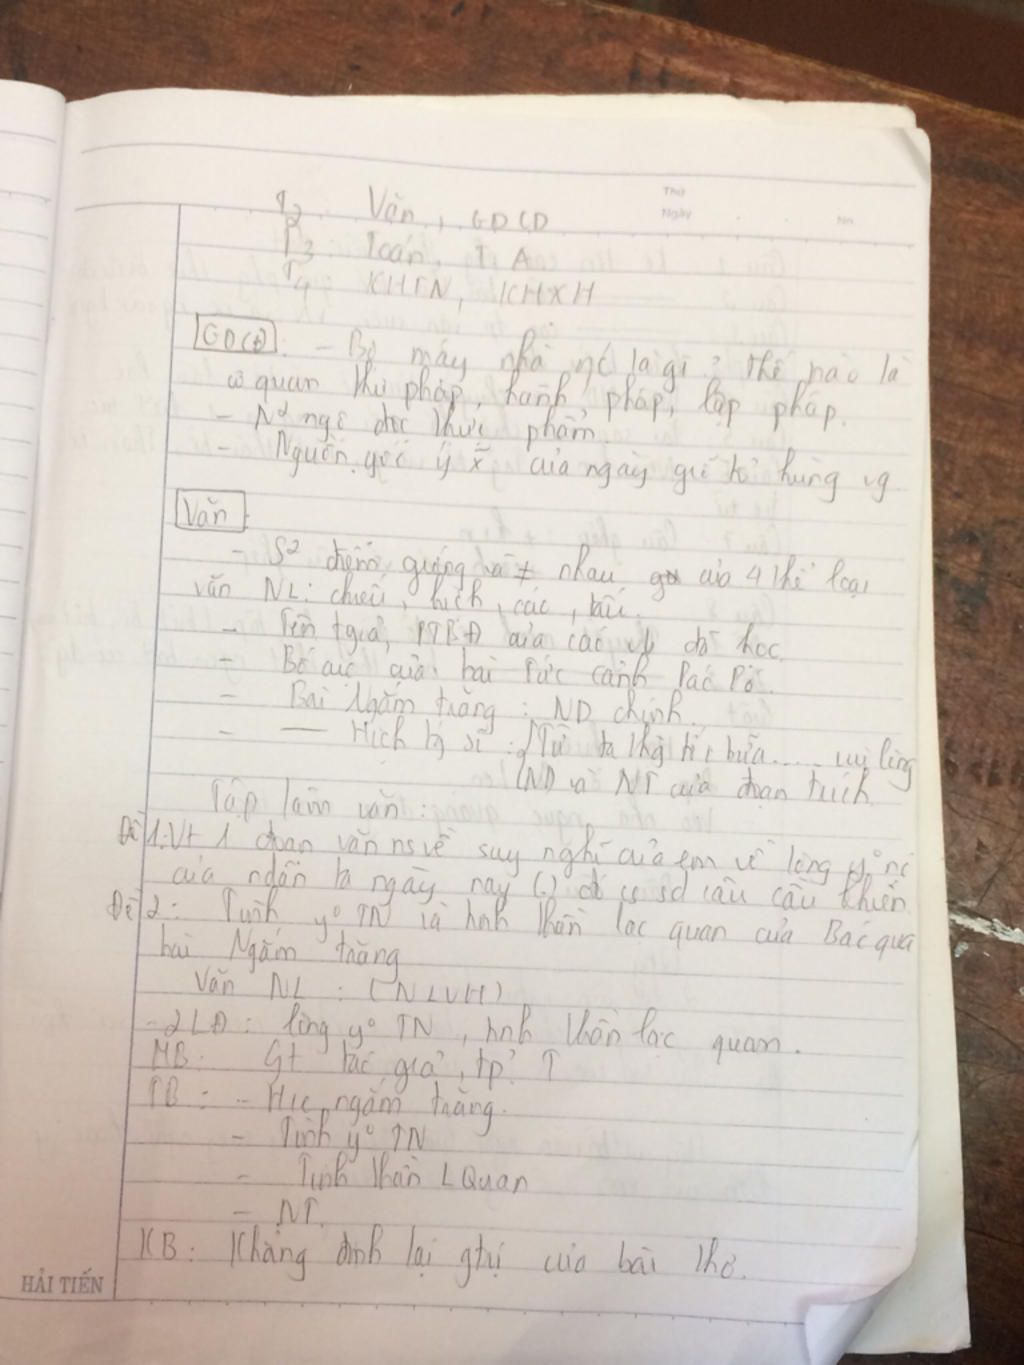 Thứ
Ngày No
T2: Văn, GDCD
T3 Toán, T A
T4 KHTN, KHXH
GDCD: - Bộ máy nhà nc là gì? thế nào là
cơ quan tư pháp, hành pháp, lập pháp.
- N² ngộ độc thực phẩm
- Nguồn gốc ý của ngày giỗ tổ hùng vg
Văn
- S² điểm giống và ≠ nhau của 4 thể loại
văn NL: chiếu, hịch, cáo, tấu.
- Tên tgiả, PTBĐ của các vb đã học.
- Bố cục của bài Tức cảnh Pác Pó.
- Bài Ngắm trăng: ND chính.
- — Hịch tg sĩ: Từ "Ta thg tới bữa..... vui lòng
(ND và NT của đoạn trích.
Tập làm văn:
Đề 1: Vt 1 đoạn văn ns về suy nghĩ của em về lòng y° nc
của ndân ta ngày nay (.) đó có sd câu cầu khiến.
Đề 2: Tình y° TN và tinh thần lạc quan của Bác qua
bài Ngắm trăng
Văn NL: (NLVH)
- 2LĐ: lòng y° TN, tinh thần lạc quan.
MB: Gt tác giả, tp?
TB: - ngắm trăng.
- Tình y° TN
- Tinh thần LQuan
- NT.
KB: Khẳng định lại gtrị của bài thơ.
HẢI TIẾN